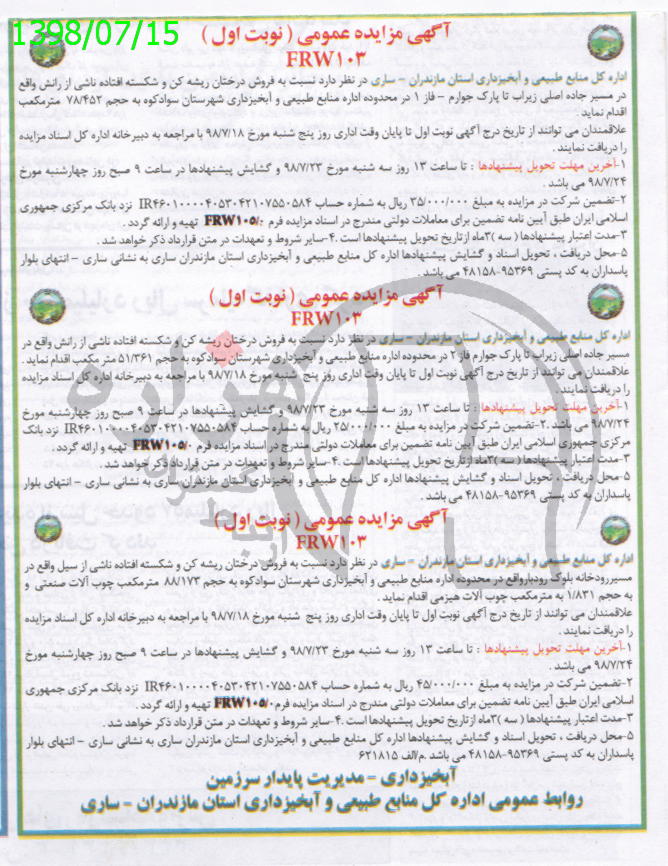 1398/07/15
آگهی مزایده عمومی ( نوبت اول )
FRW۱۰۳
اداره کل منابع طبیعی و آبخیزداری استان مازندران – ساری در نظر دارد نسبت به فروش درختان ریشه کن و شکسته افتاده ناشی از رانش واقع
در مسیر جاده اصلی زیراب تا پارک جوارم – فاز ۱ در محدوده اداره منابع طبیعی و آبخیزداری شهرستان سوادکوه به حجم ۷۸/۴۵۲ مترمکعب
اقدام نماید .
علاقمندان می توانند از تاریخ درج آگهی نوبت اول تا پایان وقت اداری روز پنج شنبه مورخ ۹۸/۷/۱۸ با مراجعه به دبیرخانه اداره کل اسناد مزایده
را دریافت نمایند .
۱-آخرین مهلت تحویل پیشنهادها : تا ساعت ۱۳ روز سه شنبه مورخ ۹۸/۷/۲۳ و گشایش پیشنهادها در ساعت ۹ صبح روز چهارشنبه مورخ
۹۸/۷/۲۴ می باشد .
۲-تضمین شرکت در مزایده به مبلغ ۳۵/۰۰۰/۰۰۰ ریال به شماره حساب IR۴۶۰۱۰۰۰۰۴۰۵۳۰۴۲۱۰۷۵۵۰۵۸۴ نزد بانک مرکزی جمهوری
اسلامی ایران طبق آیین نامه تضمین برای معاملات دولتی مندرج در اسناد مزایده فرم FRW۱۰۵/۰ تهیه و ارائه گردد .
۳-مدت اعتبار پیشنهادها ( سه )۳ماه ازتاریخ تحویل پیشنهادها است .۴-سایر شروط و تعهدات در متن قرارداد ذکر خواهد شد .
۵-محل دریافت ، تحویل اسناد و گشایش پیشنهادها اداره کل منابع طبیعی و آبخیزداری استان مازندران ساری به نشانی ساری – انتهای بلوار
پاسداران به کد پستی ۹۵۳۶۹-۴۸۱۵۸ می باشد .
آگهی مزایده عمومی ( نوبت اول )
FRW۱۰۳
اداره کل منابع طبیعی و آبخیزداری استان مازندران – ساری در نظر دارد نسبت به فروش درختان ریشه کن و شکسته افتاده ناشی از رانش واقع در
مسیر جاده اصلی زیراب تا پارک جوارم فاز ۲ در محدوده اداره منابع طبیعی و آبخیزداری شهرستان سوادکوه به حجم ۵۱/۳۶۱ متر مکعب اقدام نماید .
علاقمندان می توانند از تاریخ درج آگهی نوبت اول تا پایان وقت اداری روز پنج شنبه مورخ ۹۸/۷/۱۸ با مراجعه به دبیرخانه اداره کل اسناد مزایده
را دریافت نمایند.
۱-آخرین مهلت تحویل پیشنهادها : تا ساعت ۱۳ روز سه شنبه مورخ ۹۸/۷/۲۳ و گشایش پیشنهادها در ساعت ۹ صبح روز چهارشنبه مورخ
۹۸/۷/۲۴ می باشد .۲-تضمین شرکت در مزایده به مبلغ ۲۵/۰۰۰/۰۰۰ ریال به شماره حساب IR۴۶۰۱۰۰۰۰۴۰۵۳۰۴۲۱۰۷۵۵۰۵۸۴ نزد بانک
مرکزی جمهوری اسلامی ایران طبق آیین نامه تضمین برای معاملات دولتی مندرج در اسناد مزایده فرم FRW۱۰۵/۰ تهیه و ارائه گردد .
۳-مدت اعتبار پیشنهادها ( سه )۳ماه ازتاریخ تحویل پیشنهادها است .۴-سایر شروط و تعهدات در متن قرارداد ذکر خواهد شد .
۵-محل دریافت ، تحویل اسناد و گشایش پیشنهادها اداره کل منابع طبیعی و آبخیزداری استان مازندران ساری به نشانی ساری – انتهای بلوار
پاسداران به کد پستی ۹۵۳۶۹-۴۸۱۵۸ می باشد .
آگهی مزایده عمومی ( نوبت اول )
FRW۱۰۳
اداره کل منابع طبیعی و آبخیزداری استان مازندران – ساری در نظر دارد نسبت به فروش درختان ریشه کن و شکسته افتاده ناشی از سیل واقع در
مسیررودخانه بلوک رودبارواقع در محدوده اداره منابع طبیعی و آبخیزداری شهرستان سوادکوه به حجم ۸۸/۱۷۳ مترمکعب چوب آلات صنعتی و
به حجم ۱/۸۳۱ به مترمکعب چوب آلات هیزمی اقدام نماید .
علاقمندان می توانند از تاریخ درج آگهی نوبت اول تا پایان وقت اداری روز پنج شنبه مورخ ۹۸/۷/۱۸ با مراجعه به دبیرخانه اداره کل اسناد مزایده
را دریافت نمایند .
۱-آخرین مهلت تحویل پیشنهادها : تا ساعت ۱۳ روز سه شنبه مورخ ۹۸/۷/۲۳ و گشایش پیشنهادها در ساعت ۹ صبح روز چهارشنبه مورخ
۹۸/۷/۲۴ می باشد .
۲-تضمین شرکت در مزایده به مبلغ ۴۵/۰۰۰/۰۰۰ ریال به شماره حساب IR۴۶۰۱۰۰۰۰۴۰۵۳۰۴۲۱۰۷۵۵۰۵۸۴ نزد بانک مرکزی جمهوری
اسلامی ایران طبق آیین نامه تضمین برای معاملات دولتی مندرج در اسناد مزایده فرم FRW۱۰۵/۰ تهیه و ارائه گردد .
۳-مدت اعتبار پیشنهادها ( سه )۳ماه ازتاریخ تحویل پیشنهادها است .۴-سایر شروط و تعهدات در متن قرارداد ذکر خواهد شد .
۵-محل دریافت ، تحویل اسناد و گشایش پیشنهادها اداره کل منابع طبیعی و آبخیزداری استان مازندران ساری به نشانی ساری – انتهای بلوار
پاسداران به کد پستی ۹۵۳۶۹-۴۸۱۵۸ می باشد .م/الف ۶۲۱۸۱۵
آبخیزداری – مدیریت پایدار سرزمین
روابط عمومی اداره کل منابع طبیعی و آبخیزداری استان مازندران – ساری